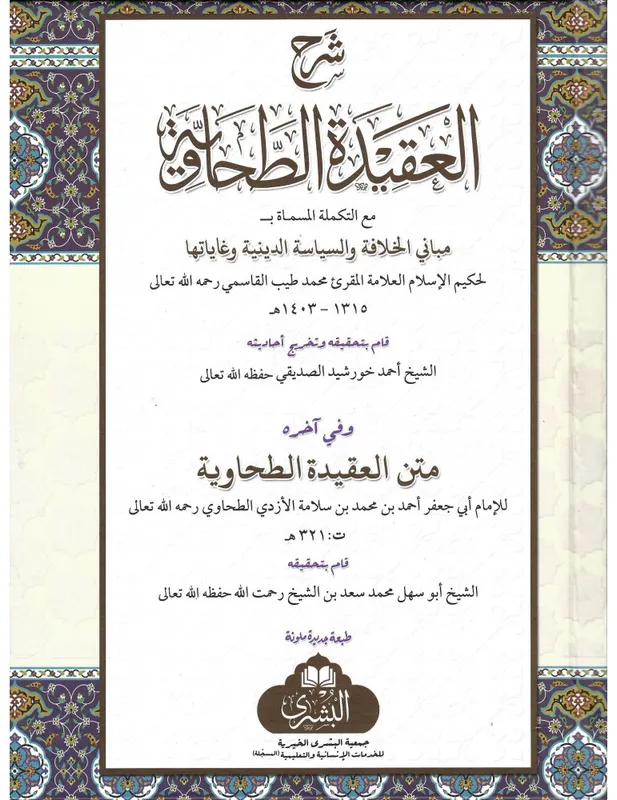 شرح
العقيدة الطحاوية
مع التكملة المسماة بـ
مباني الخلافة والسياسة الدينية وغاياتها
لحكيم الإسلام العلامة المقرئ محمد طيب القاسمي رحمه الله تعالى
١٣١٥ - ١٤٠٣هـ
قام بتحقيقه وتخريج أحاديثه
الشيخ أحمد خورشيد الصديقي حفظه الله تعالى
وفي آخره
متن العقيدة الطحاوية
للإمام أبي جعفر أحمد بن محمد بن سلامة الأزدي الطحاوي رحمه الله تعالى
ت: ٣٢١ هـ
قام بتحقيقه
الشيخ أبو سهل محمد سعد بن الشيخ رحمت الله حفظه الله تعالى
طبعة جديدة ملونة
البشرى
جمعية البشرى الخيرية
للخدمات الإنسانية والتعليمية (المسجلة)